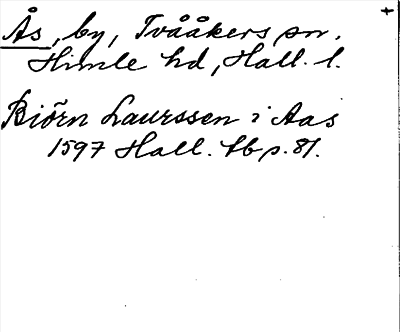 Ås, by, Tvååkers sn.
Himle hd, Hall. l.
Biörn Laurssen i Aas
1597 Hall. tb p. 81.